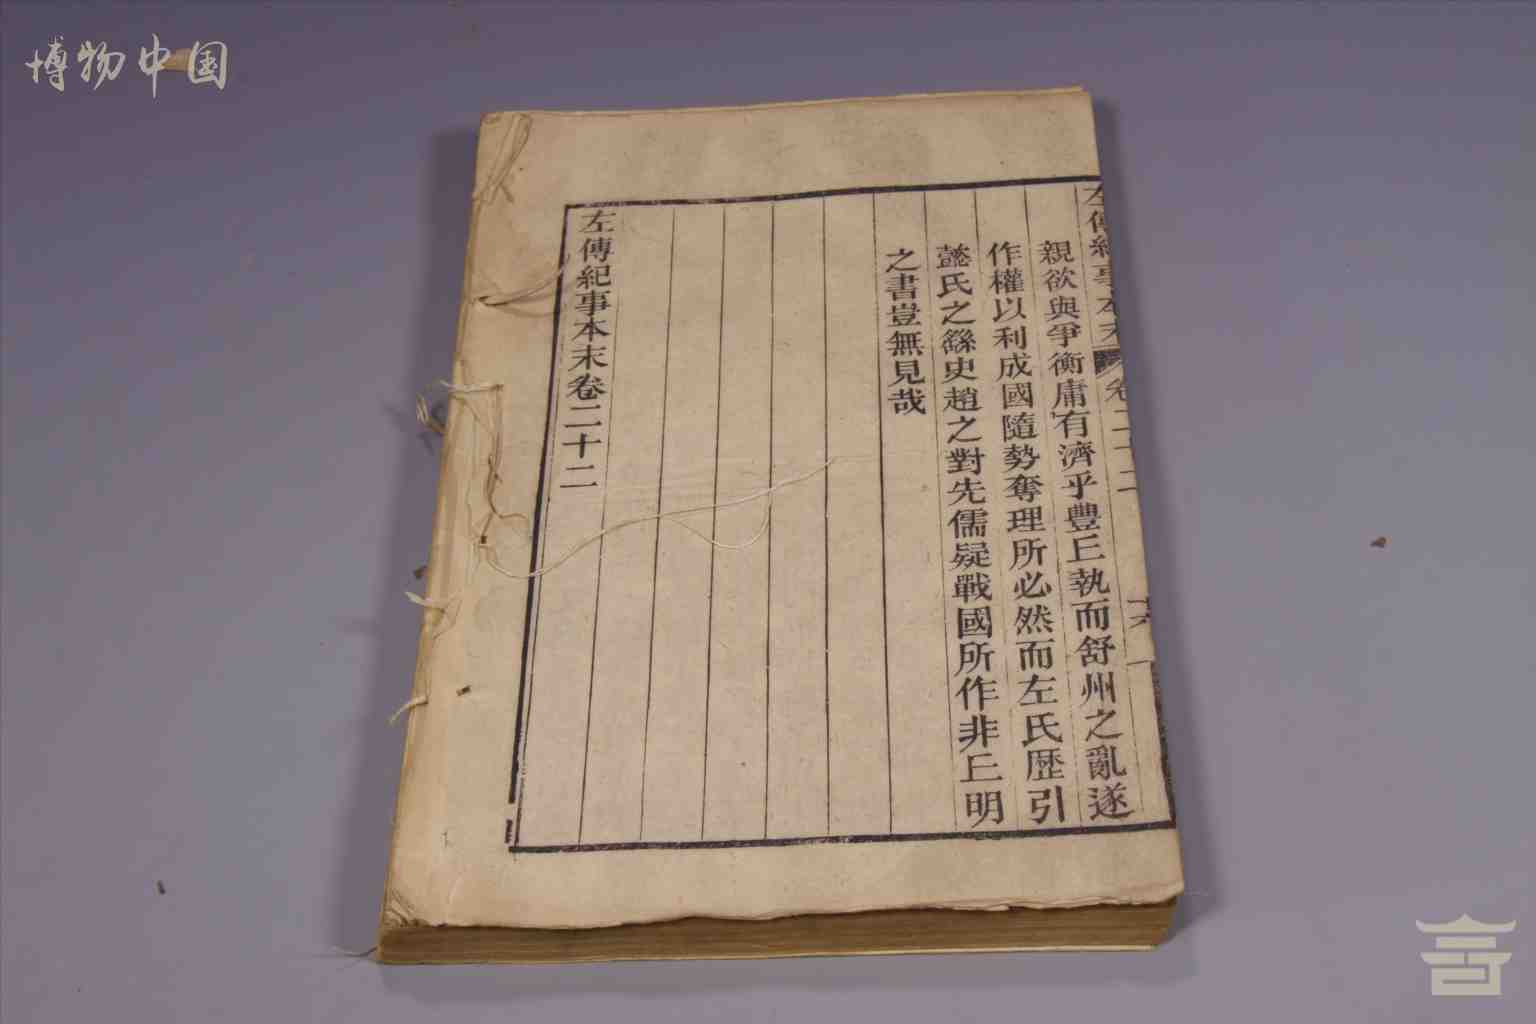 博物中国
左傳紀事本末 卷二十二 六
親欲與爭衡庸有濟乎豐𠀉執而舒州之亂遂
作權以利成國隨勢奪理所必然而左氏歷引
懿氏之繇史趙之對先儒疑戰國所作非𠀉明
之書豈無見哉
左傳紀事本末卷二十二